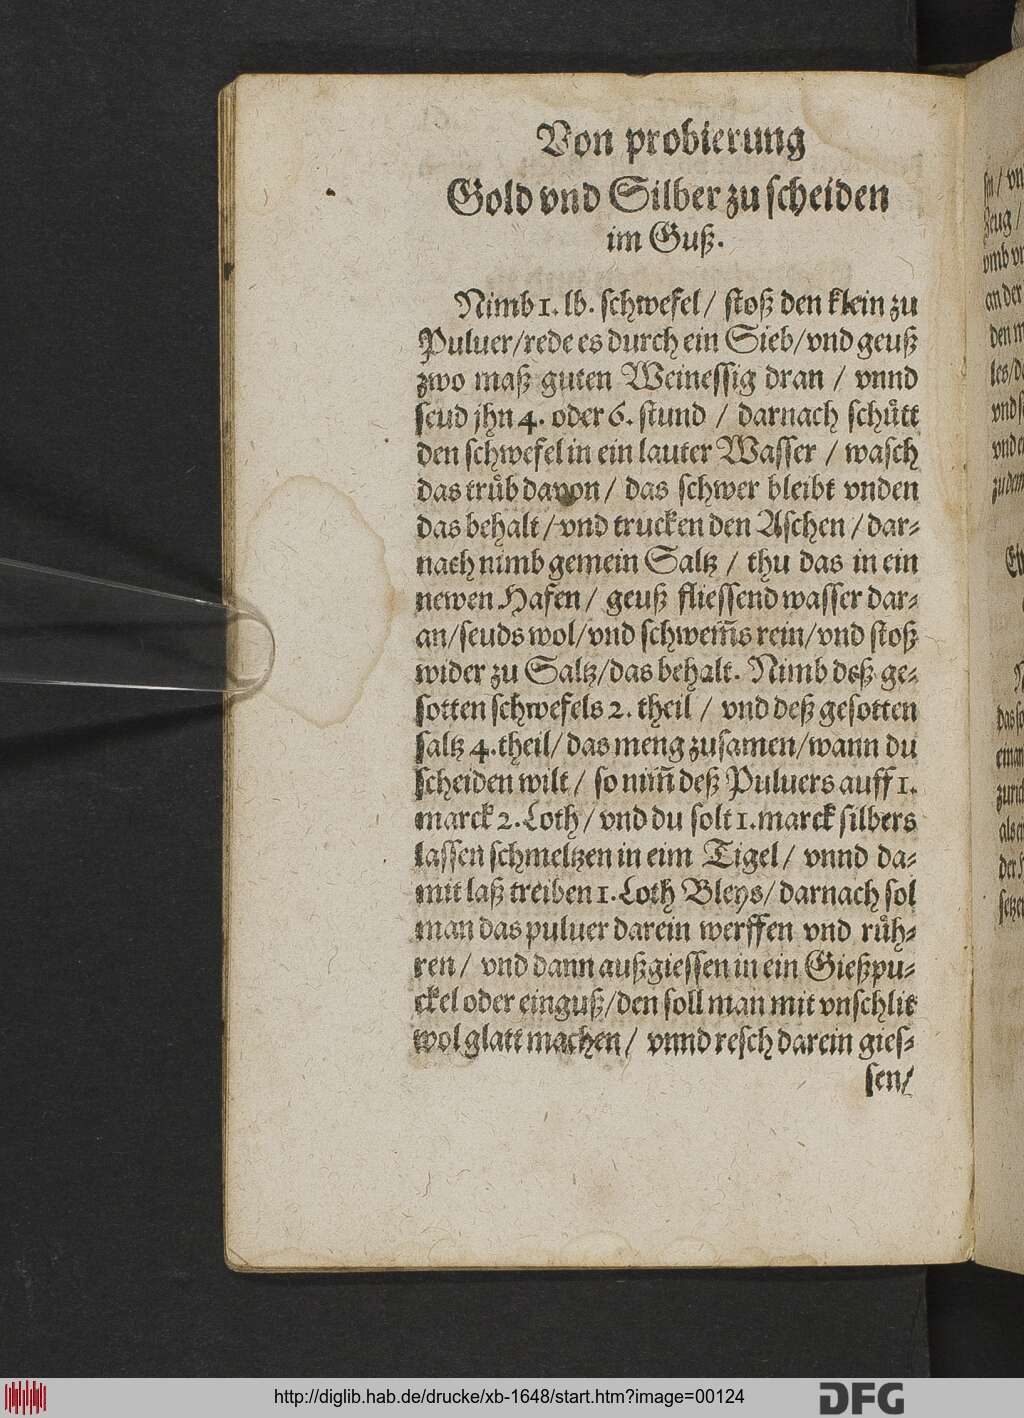 Von probierung
Gold vnd Silber zu scheiden
im Guß.
Nimb 1. lb. schwefel / stoß den klein zu
Puluer/rede es durch ein Sieb/vnd geuß
zwo maß guten Weinessig dran / vnnd
seud jhn 4. oder 6. stund / darnach schuͤtt
den schwefel in ein lauter Wasser / wasch
das truͤb dauon / das schwer bleibt vnden
das behalt / vnd trucken den Aschen / dar⸗
nach nimb gemein Saltz / thu das in ein
newen Hafen / geuß fliessend wasser dar⸗
an/seuds wol/vnd schwem̄s rein/vnd stoß
wider zu Saltz/das behalt. Nimb deß ge⸗
sotten schwefels 2. theil / vnd deß gesotten
saltz 4. theil/ das meng zusamen/wann du
scheiden wilt / so nim̄ deß Puluers auff 1.
marck 2. Loth / vnd du solt 1. marck silbers
lassen schmeltzen in eim Tigel / vnnd da⸗
mit laß treiben 1. Loth Bleys/ darnach sol
man das puluer darein werffen vnd ruͤh⸗
ren / vnd dann außgiessen in ein Gießpu⸗
ckel oder einguß/den soll man mit vnschlit
wol glatt machen / vnnd resch darein gies⸗
sen/
http://diglib.hab.de/drucke/xb-1648/start.htm?image=00124
DFG